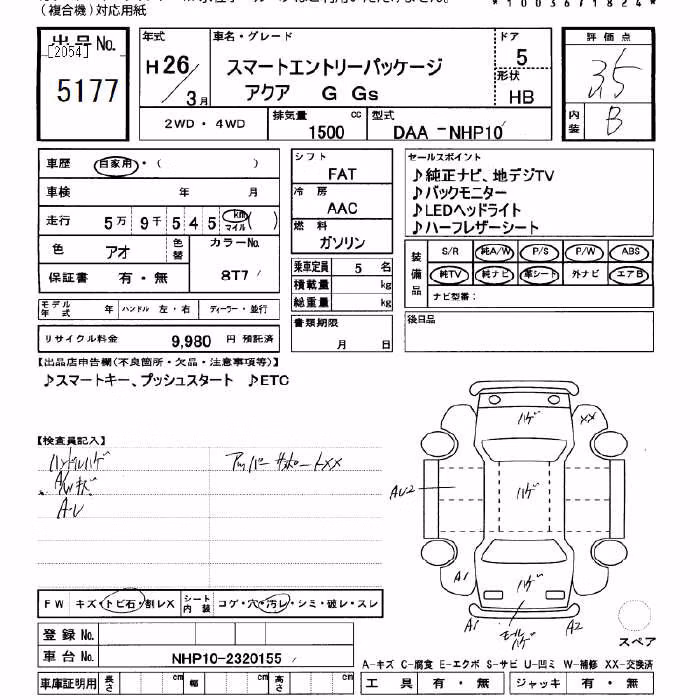 (複合機)対応用紙
*1003671824*
出品No.
[2054]
5177
年式
H26/3月
車名・グレード
スマートエントリーパッケージ
アクア G Gs
ドア
5
形状
HB
評価点
3.5
内装
B
2WD・4WD
排気量
1500 cc
型式
DAA-NHP10
車歴
自家用・( )
車検 年 月
走行 5万9千545 km マイル ( )
色 アオ
色替
カラーNo.
8T7
保証書 有・無
モデル年式 年
ハンドル 左・右
ディーラー・並行
リサイクル料金 9,980 円 預託済
シフト
FAT
冷房
AAC
燃料
ガソリン
乗車定員 5 名
積載量 kg
総重量 kg
書類期限
月 日
セールスポイント
♪純正ナビ、地デジTV
♪バックモニター
♪LEDヘッドライト
♪ハーフレザーシート
装備品
S/R 純A/W P/S P/W ABS
純TV 純ナビ 革シート 外ナビ エアB
ナビ型番:
後日品
【出品店申告欄(不良箇所・欠品・注意事項等)】
♪スマートキー、プッシュスタート ♪ETC
【検査員記入】
ハンドルハゲ
A/Wキズ
アッパーサポートXX
ハゲ
XX
AU2
ハゲ
A1
ハゲ
A1
モールハゲ
A2
スペア
FW キズ・トビ石・割レX
シート内装 コゲ・穴・汚レ・シミ・破レ・スレ
登録No.
車台No. NHP10-2320155
車庫証明用 長さ cm 幅 cm 高さ cm
A-キズ C-腐食 E-エクボ S-サビ U-凹ミ W-補修 XX-交換済
工具 有・無 ジャッキ 有・無